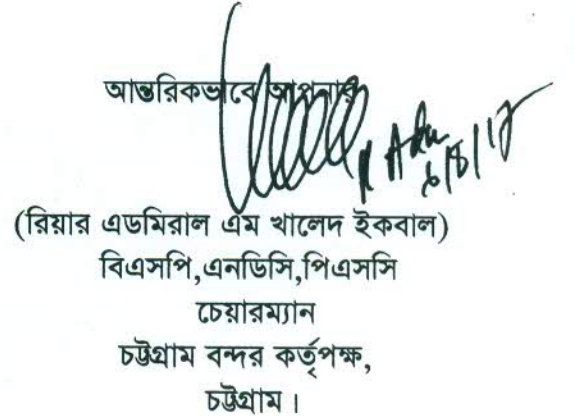 আন্তরিকভাবে আপনার
(রিয়ার এডমিরাল এম খালেদ ইকবাল)
বিএসপি,এনডিসি,পিএসসি
চেয়ারম্যান
চট্টগ্রাম বন্দর কর্তৃপক্ষ,
চট্টগ্রাম।